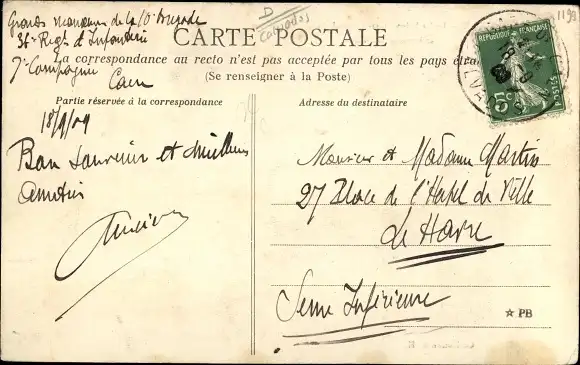 D
Calvados
1193
Grandes manœuvres de la 10e Brigade
36e Regt d'Infanterie
7e Compagnie
Caen
CARTE POSTALE
La correspondance au recto n'est pas acceptée par tous les pays étra
(Se renseigner à la Poste)
Partie réservée à la correspondance
Adresse du destinataire
REPUBLIQUE FRANÇAISE
5c
POSTES
18/9/09
Bon souvenir et meilleures
amitiés
Monsieur et Madame Martin
27 Place de l'Hotel de Ville
Le Havre
Seine Inférieure
PB